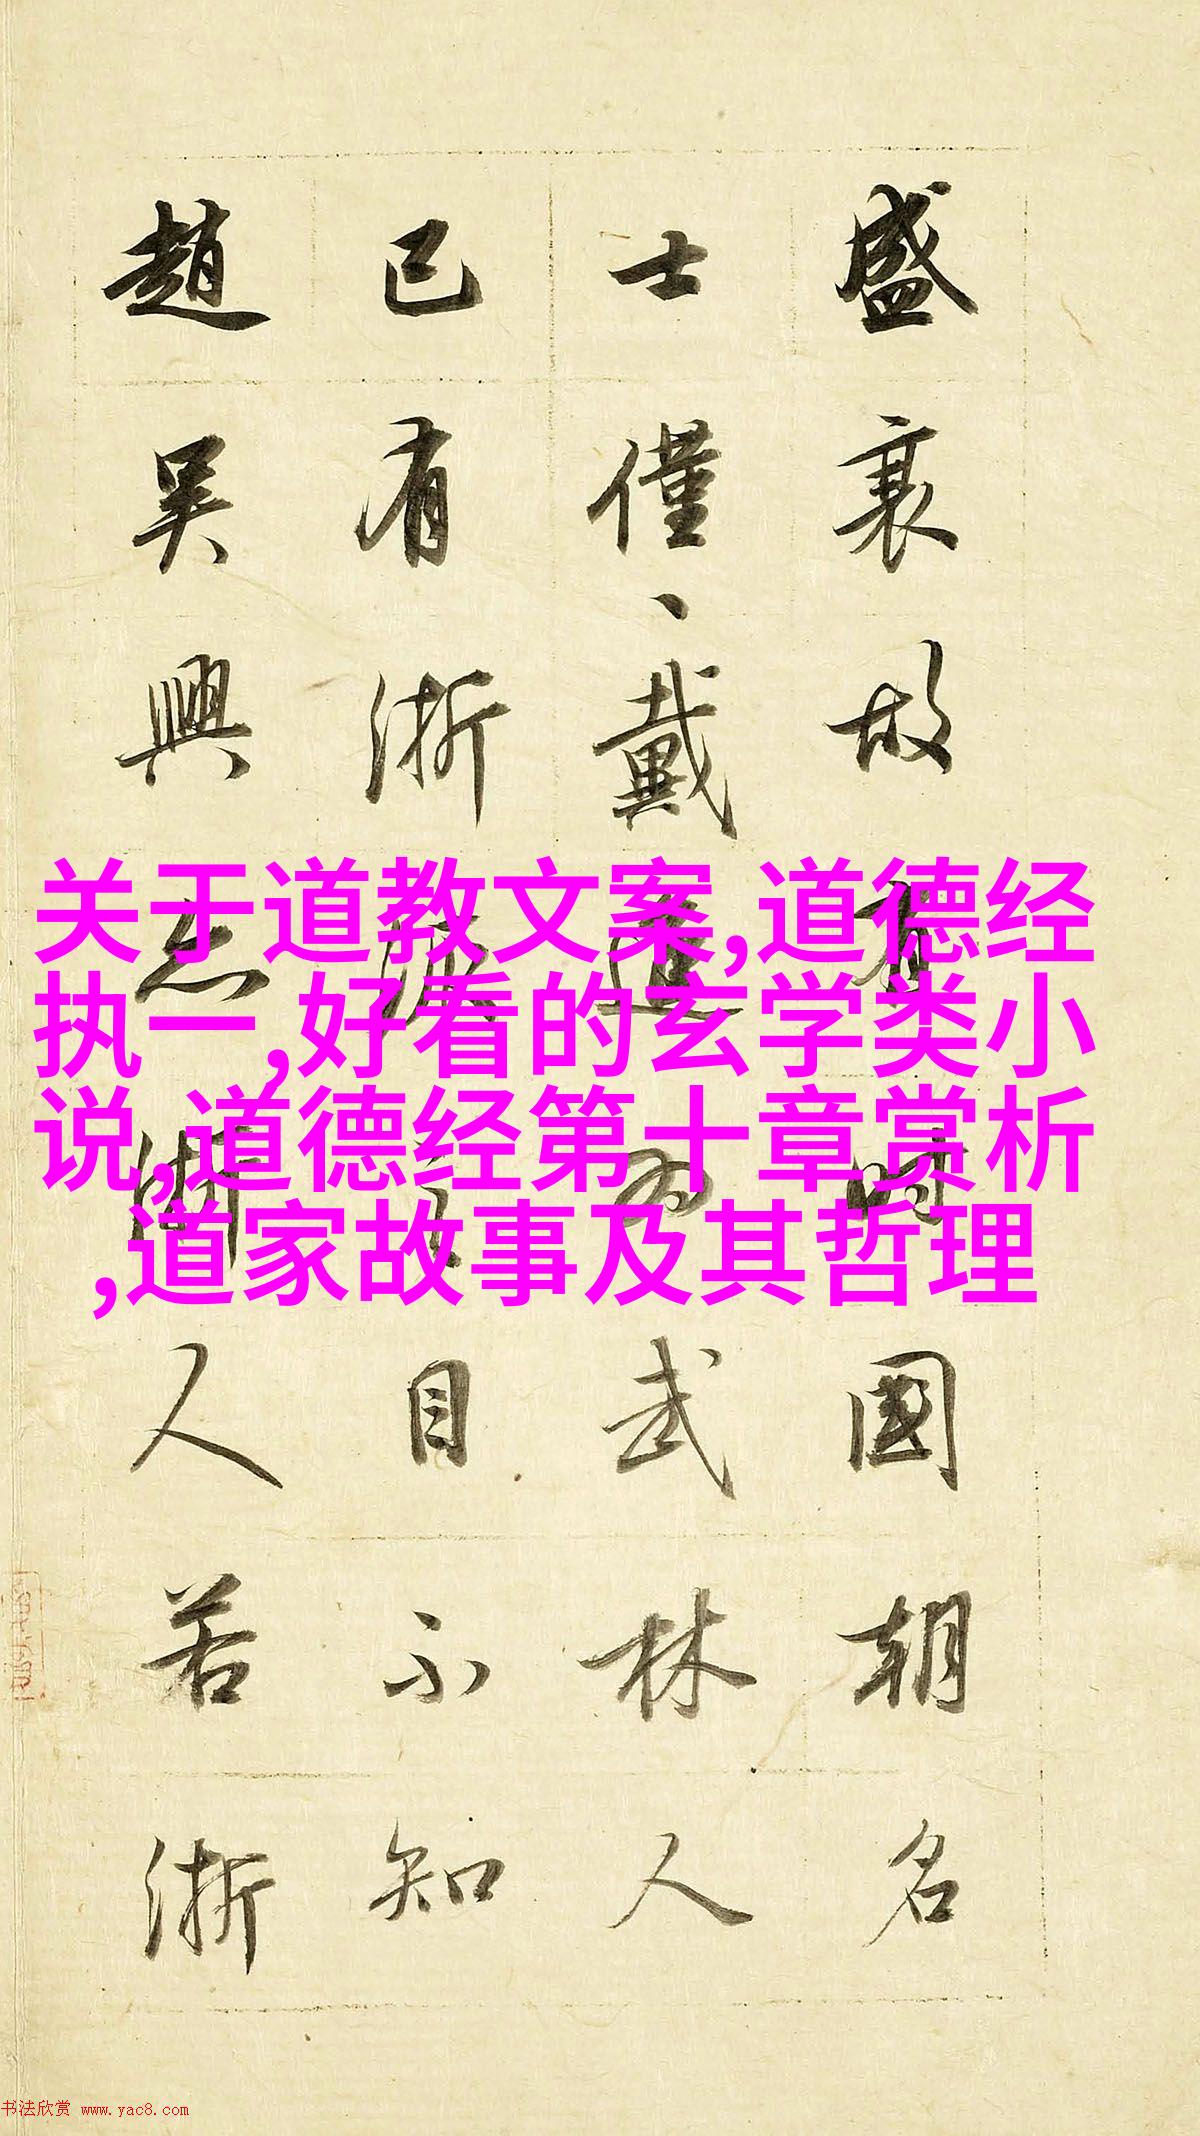 盛衰故有時國朝名
士僅、戴進為武林人
已有浙派之目不知
趙吳興亦浙人若浙
关于道教文案,道德经
执一,好看的玄学类小
说,道德经第十章赏析
,道家故事及其哲理
书法欣赏 www.yac8.com